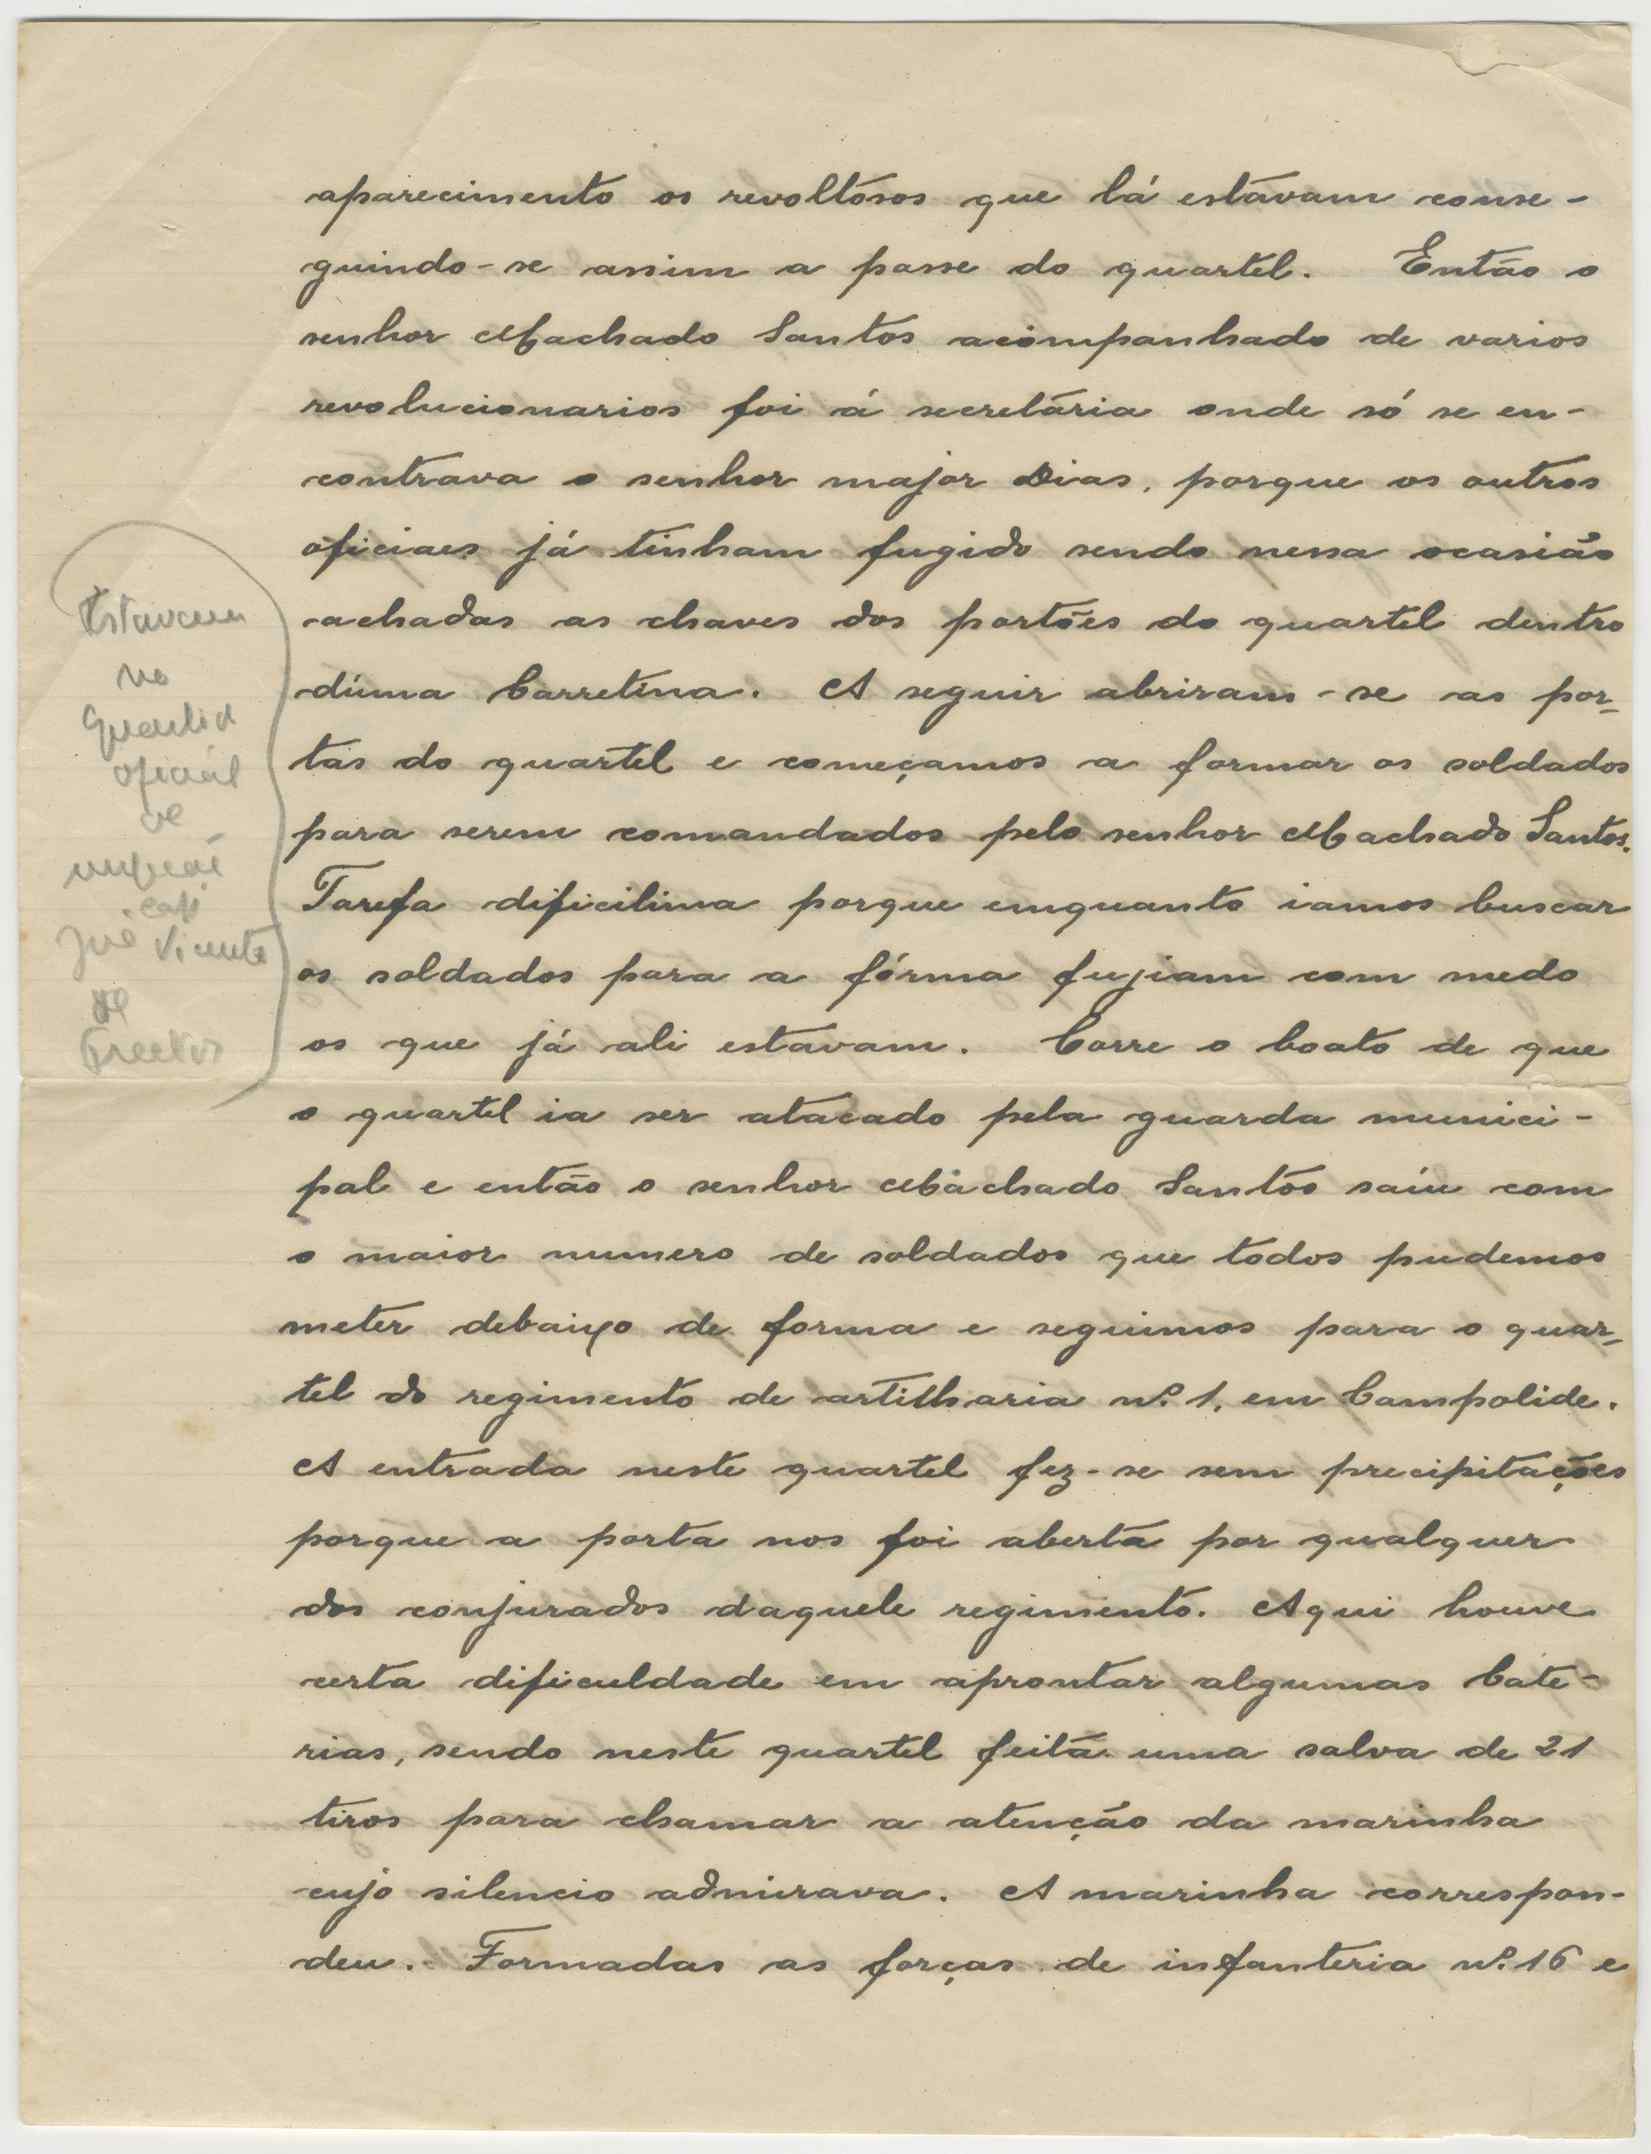 aparecimento os revoltósos que lá estávam conse-
guindo-se assim a posse do quartel. Então o
senhor Machado Santos acompanhado de varios
revolucionarios foi á secretária onde só se en-
contrava o senhor major Dias, porque os outros
oficiaes já tinham fugido sendo nessa ocasião
achadas as chaves dos portões do quartel dentro
dúma barretina. A seguir abriram-se as por-
tas do quartel e começamos a formar os soldados
para serem comandados pelo senhor Machado Santos.
Tarefa dificilima porque emquanto iamos buscar
os soldados para a fórma fujiam com medo
os que já ali estavam. Corre o boato de que
o quartel ia ser atacado pela guarda munici-
pal e então o senhor Machado Santos saíu com
o maior numero de soldados que todos pudemos
meter debaixo de forma e seguimos para o quar-
tel do regimento de artilharia nº. 1, em Campolide.
A entrada neste quartel fez-se sem precipitações
porque a porta nos foi aberta por qualquer
dos conjurados daquele regimento. Aqui houve
certa dificuldade em aprontar algumas bate-
rias, sendo neste quartel feita uma salva de 21
tiros para chamar a atenção da marinha
cujo silencio admirava. A marinha correspon-
deu. Formadas as forças de infanteria nº. 16 e
Estavam
no
oficial
de
cap.
José Vicente
de